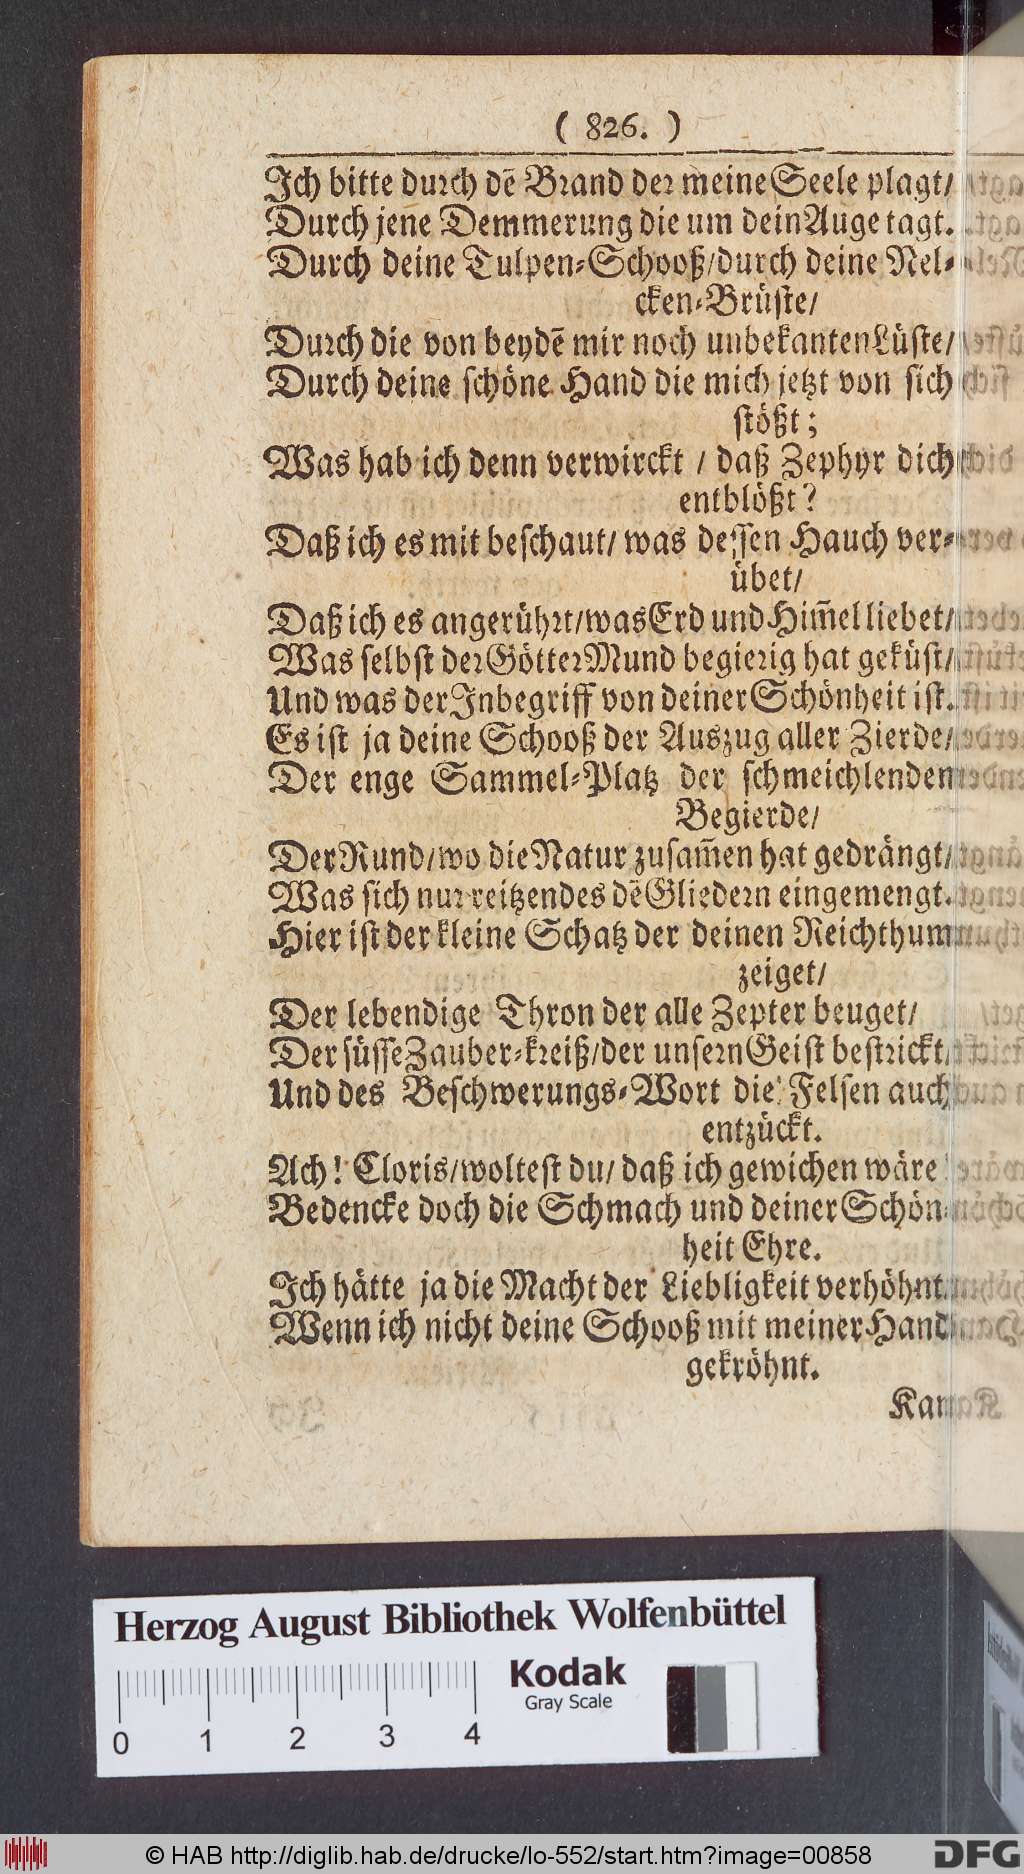 ( 826. )
Ich bitte durch dē Brand der meine Seele plagt/
Durch jene Demmerung die um dein Auge tagt.
Durch deine Tulpen-Schooß/durch deine Nel-
cken-Brüste/
Durch die von beydē mir noch unbekanten Lüste/
Durch deine schöne Hand die mich jetzt von sich
stößt;
Was hab ich denn verwirckt / daß Zephyr dich
entblößt?
Daß ich es mit beschaut/ was dessen Hauch ver-
übet/
Daß ich es angerührt/was Erd und Him̄el liebet/
Was selbst der Götter Mund begierig hat geküst/
Und was der Inbegriff von deiner Schönheit ist.
Es ist ja deine Schooß der Auszug aller Zierde/
Der enge Sammel-Platz der schmeichlenden
Begierde/
Der Rund/wo die Natur zusam̄en hat gedrängt/
Was sich nur reitzendes dē Gliedern eingemengt.
Hier ist der kleine Schatz der deinen Reichthum
zeiget/
Der lebendige Thron der alle Zepter beuget/
Der süsse Zauber-kreiß/der unsern Geist bestrickt/
Und des Beschwerungs-Wort die Felsen auch
entzückt.
Ach! Cloris/woltest du/ daß ich gewichen wäre
Bedencke doch die Schmach und deiner Schön-
heit Ehre.
Ich hätte ja die Macht der Liebligkeit verhöhnt
Wenn ich nicht deine Schooß mit meiner Hand
gekröhnt.
Herzog August Bibliothek Wolfenbüttel
Kodak
Gray Scale
0 1 2 3 4
© HAB http://diglib.hab.de/drucke/lo-552/start.htm?image=00858
DFG